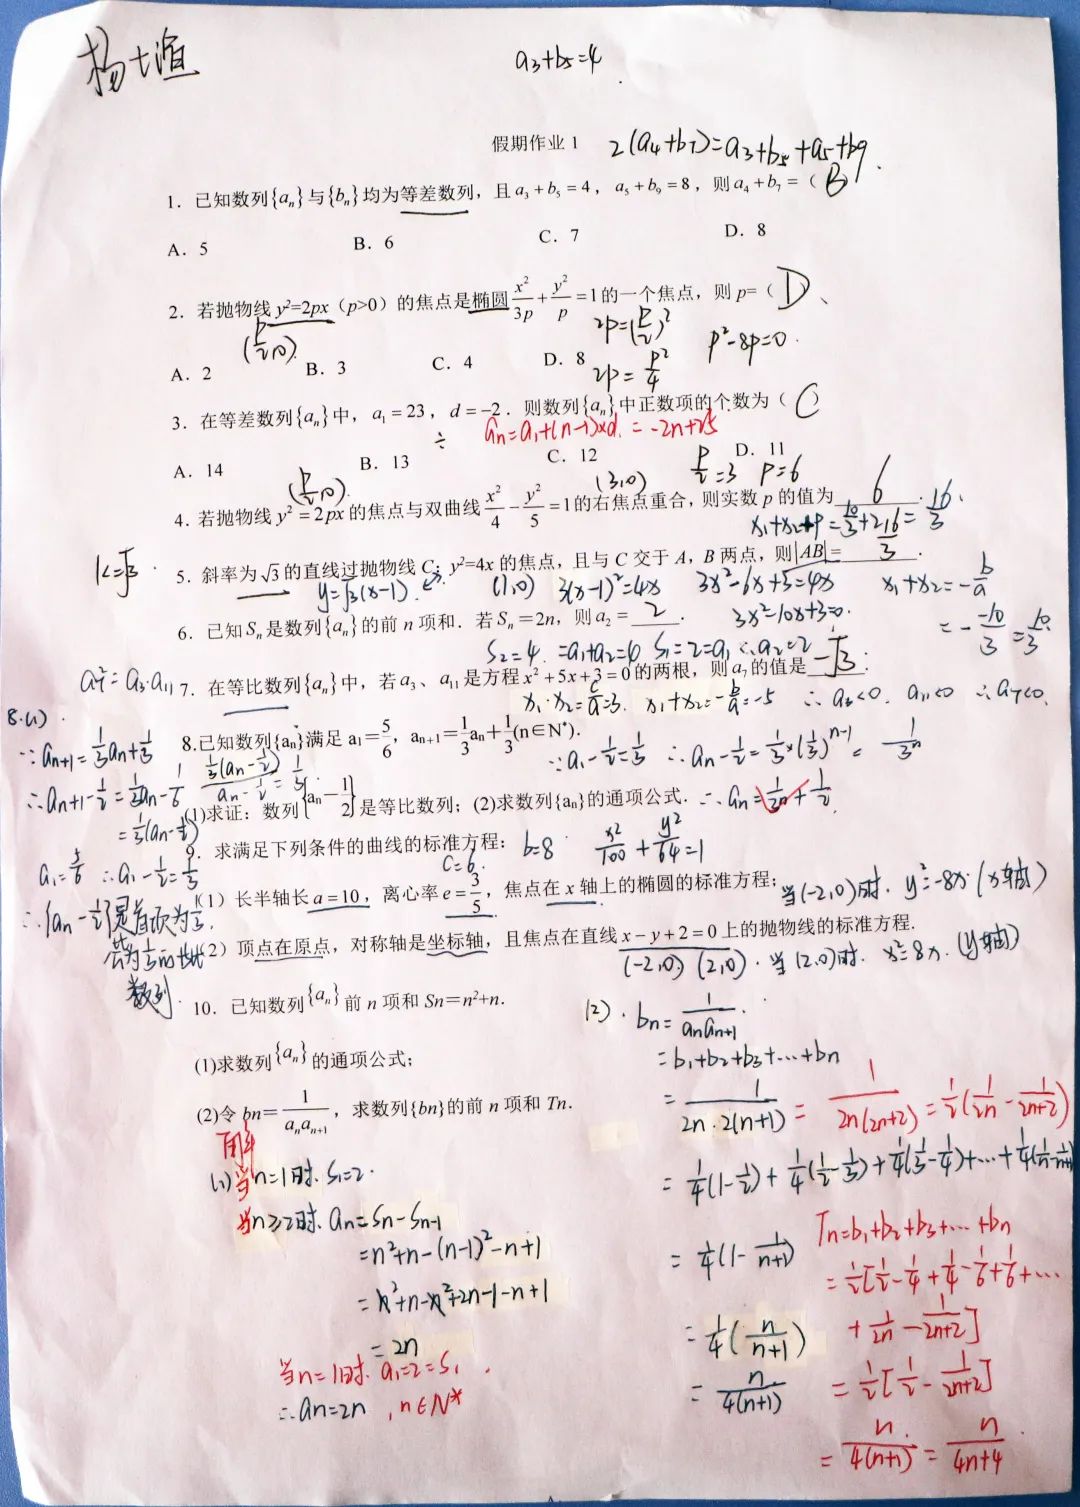 杨七渲
a₃+b₅=4
假期作业 1
2(a₄+b₇)=a₃+b₅+a₅+b₉
1．已知数列{aₙ}与{bₙ}均为等差数列，且 a₃+b₅=4，a₅+b₉=8，则 a₄+b₇=（ B
A．5 B．6 C．7 D．8
2．若抛物线 y²=2px（p>0）的焦点是椭圆 x²/3p + y²/p =1 的一个焦点，则 p=（ D ）
(p/2,0) 2p=(p/2)² p²-8p=0
A．2 B．3 C．4 D．8
2p=p²/4
3．在等差数列{aₙ}中，a₁=23，d=-2．则数列{aₙ}中正数项的个数为（ C ）
aₙ=a₁+(n-1)×d. = -2n+25
A．14 B．13 C．12 D．11
(p/2,0) (3,0) p/2=3 p=6
4．若抛物线 y²=2px 的焦点与双曲线 x²/4 - y²/5 =1 的右焦点重合，则实数 p 的值为 6 .
x₁+x₂+p=10/3+2=16/3
k=√3
5．斜率为√3的直线过抛物线 C：y²=4x 的焦点，且与 C 交于 A，B 两点，则|AB|= 16/3 .
y=√3(x-1). (1,0) 3(x-1)²=4x 3x²-6x+3=4x x₁+x₂=-b/a
3x²-10x+3=0.
= - -10/3 = 10/3
6．已知 Sₙ 是数列{aₙ}的前 n 项和．若 Sₙ=2n，则 a₂= 2 .
S₂=4. =a₁+a₂=4 S₁=2=a₁ ∴a₂=2
a₇²=a₃·a₁₁
7．在等比数列{aₙ}中，若 a₃、a₁₁ 是方程 x²+5x+3=0 的两根，则 a₇ 的值是 -√3 .
x₁·x₂=c/a=3. x₁+x₂=-b/a=-5 ∴a₃<0. a₁₁<0 ∴a₇<0.
8.已知数列{aₙ}满足 a₁=5/6，aₙ₊₁=1/3aₙ+1/3(n∈N*).
(1)求证：数列{aₙ-1/2}是等比数列；(2)求数列{aₙ}的通项公式.
8.(1).
∵aₙ₊₁=1/3aₙ+1/3
∴aₙ₊₁-1/2=1/3aₙ-1/6
=1/3(aₙ-1/2)
1/3(aₙ-1/2)/aₙ-1/2=1/3
a₁=5/6 ∴a₁-1/2=1/3
∴{aₙ-1/2}是首项为1/3.
公比为1/3的等比
数列.
∵a₁-1/2=1/3 ∴aₙ-1/2=1/3×(1/3)ⁿ⁻¹= 1/3ⁿ
∴aₙ=1/3ⁿ+1/2.
9．求满足下列条件的曲线的标准方程：
b=8 x²/100+y²/64=1
c=6.
（1）长半轴长 a=10，离心率 e=3/5，焦点在 x 轴上的椭圆的标准方程；
当(-2,0)时. y²=-8x.(x轴)
（2）顶点在原点，对称轴是坐标轴，且焦点在直线 x-y+2=0 上的抛物线的标准方程.
(-2,0) (2,0). 当(2,0)时. x²=8x. (y轴)
10．已知数列{aₙ}前 n 项和 Sn＝n²+n.
(1)求数列{aₙ}的通项公式；
(2)令 bn＝1/aₙaₙ₊₁，求数列{bn}的前 n 项和 Tn.
解
(1)当n=1时. S₁=2.
当n≥2时. aₙ=Sₙ-Sₙ₋₁
=n²+n-(n-1)²-n+1
=n²+n-n²+2n-1-n+1
=2n
当n=1时. a₁=2=S₁
∴aₙ=2n ,n∈N*
(2). bₙ=1/aₙaₙ₊₁.
=b₁+b₂+b₃+…+bₙ
=1/2n·2(n+1)=1/2n(2n+2)=1/2(1/2n-1/2n+2)
=1/4(1-1/2)+1/4(1/2-1/3)+1/4(1/3-1/4)+…+1/4(1/n-1/n+1)
=1/4(1-1/n+1)
=1/4(n/n+1)
=n/4(n+1)
Tₙ=b₁+b₂+b₃+…+bₙ
=1/2[1/2-1/4+1/4-1/6+1/6+…
+1/2n-1/2n+2]
=1/2[1/2-1/2n+2]
=n/4(n+1)=n/4n+4